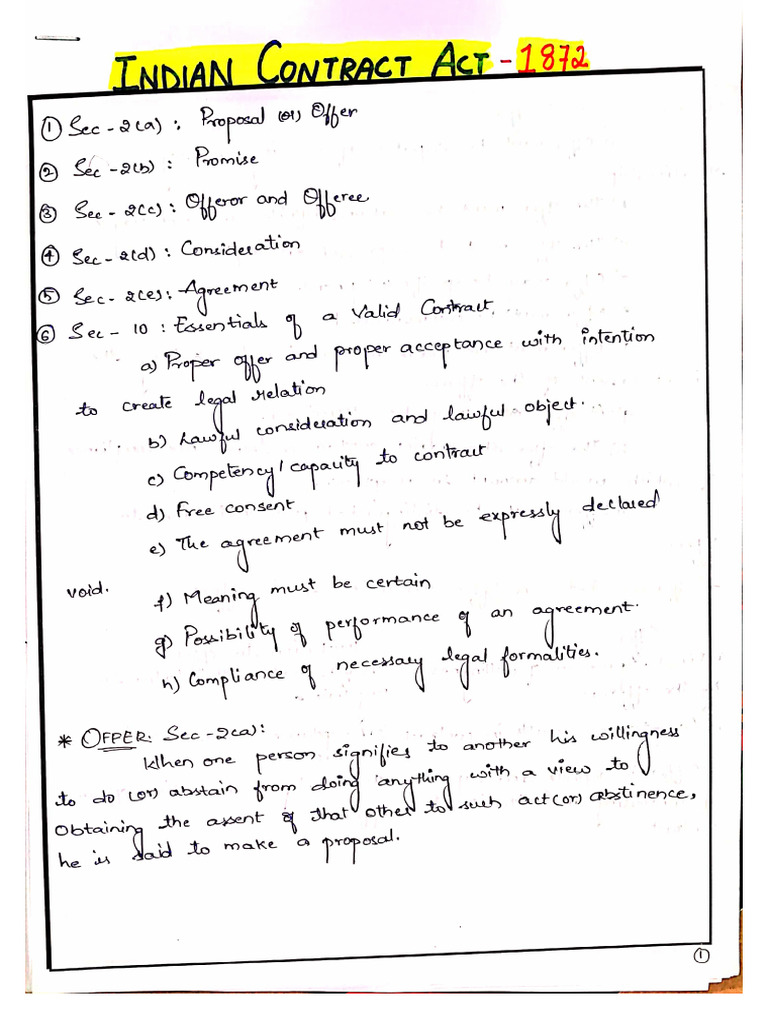 INDIAN CONTRACT ACT - 1872
① Sec - 2(a) : Proposal (or) Offer
② Sec - 2(b) : Promise
③ Sec - 2(c) : Offeror and Offeree
④ Sec - 2(d) : Consideration
⑤ Sec - 2(e) : Agreement
⑥ Sec - 10 : Essentials of a Valid Contract.
a) Proper offer and proper acceptance with intention
to create legal relation
b) Lawful consideration and lawful object.
c) Competency / capacity to contract
d) Free consent.
e) The agreement must not be expressly declared
void.
f) Meaning must be certain
g) Possibility of performance of an agreement.
h) Compliance of necessary legal formalities.
* OFFER: Sec - 2(a):
When one person signifies to another his willingness
to do (or) abstain from doing anything with a view to
Obtaining the assent of that other to such act (or) abstinence,
he is said to make a proposal.
①